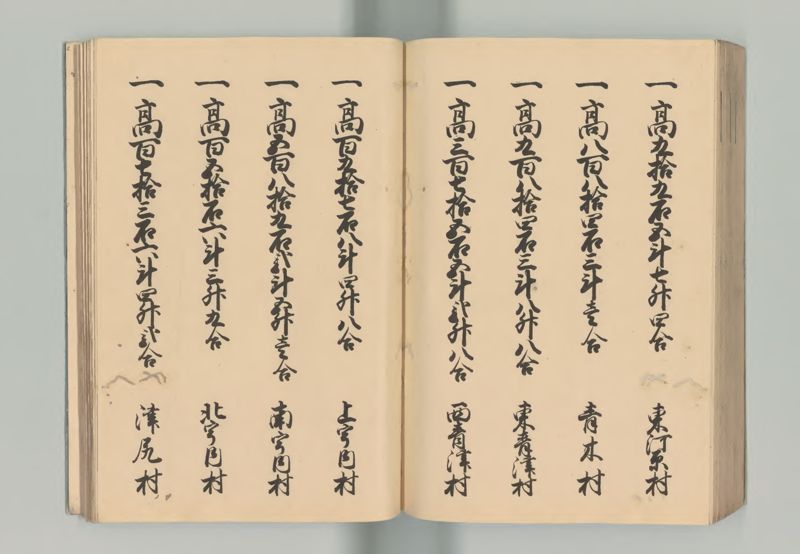 一高九拾九石五斗七升四合 東河原村
一高八百八拾四石三斗壱合 青木村
一高九百八拾四石三斗八升八合 東青津村
一高三百七拾五石五斗弐升八合 西青津村
一高百九拾七石八斗四升八合 上宇内村
一高五百八拾九石弐斗五升壱合 南宇内村
一高百五拾石六斗三升九合 北宇内村
一高百七拾三石六斗四升弐合 津尻村